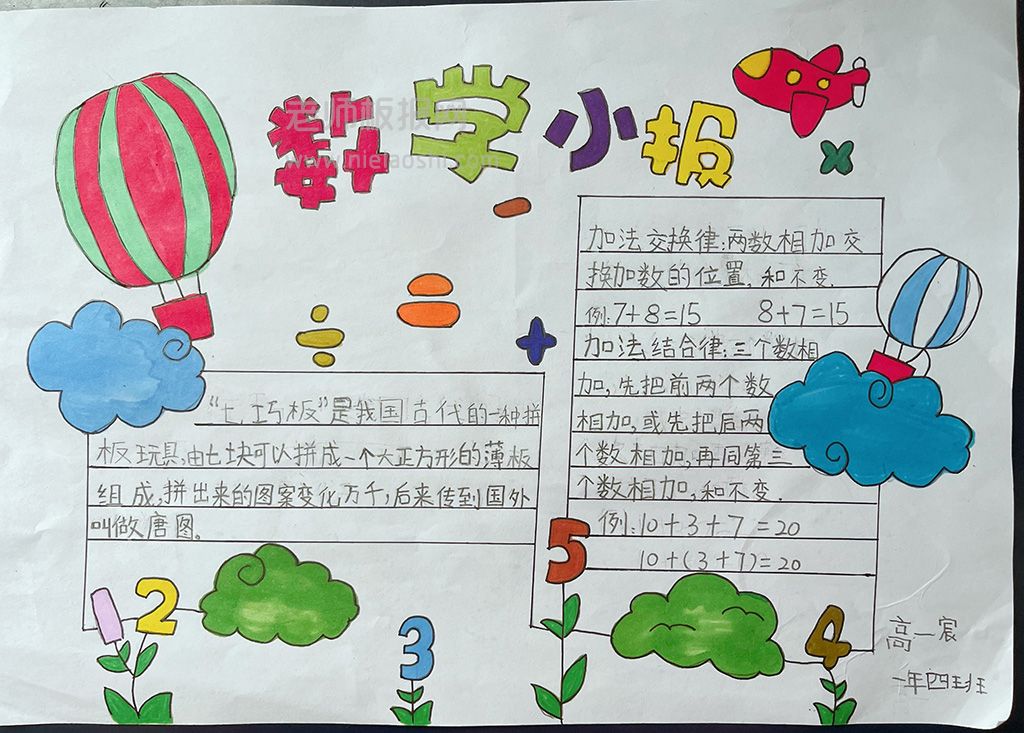 数学小报
老师板报网
"七巧板"是我国古代的一种拼
板玩具,由七块可以拼成一个大正方形的薄板
组成.拼出来的图案变化万千,后来传到国外
叫做唐图。
加法交换律:两数相加交
换加数的位置,和不变.
例:7+8=15 8+7=15
加法结合律:三个数相
加,先把前两个数
相加,或先把后两
个数相加,再同第三
个数相加,和不变.
例:10+3+7=20
10+(3+7)=20
1
2
3
5
4
高一宸
一年四班